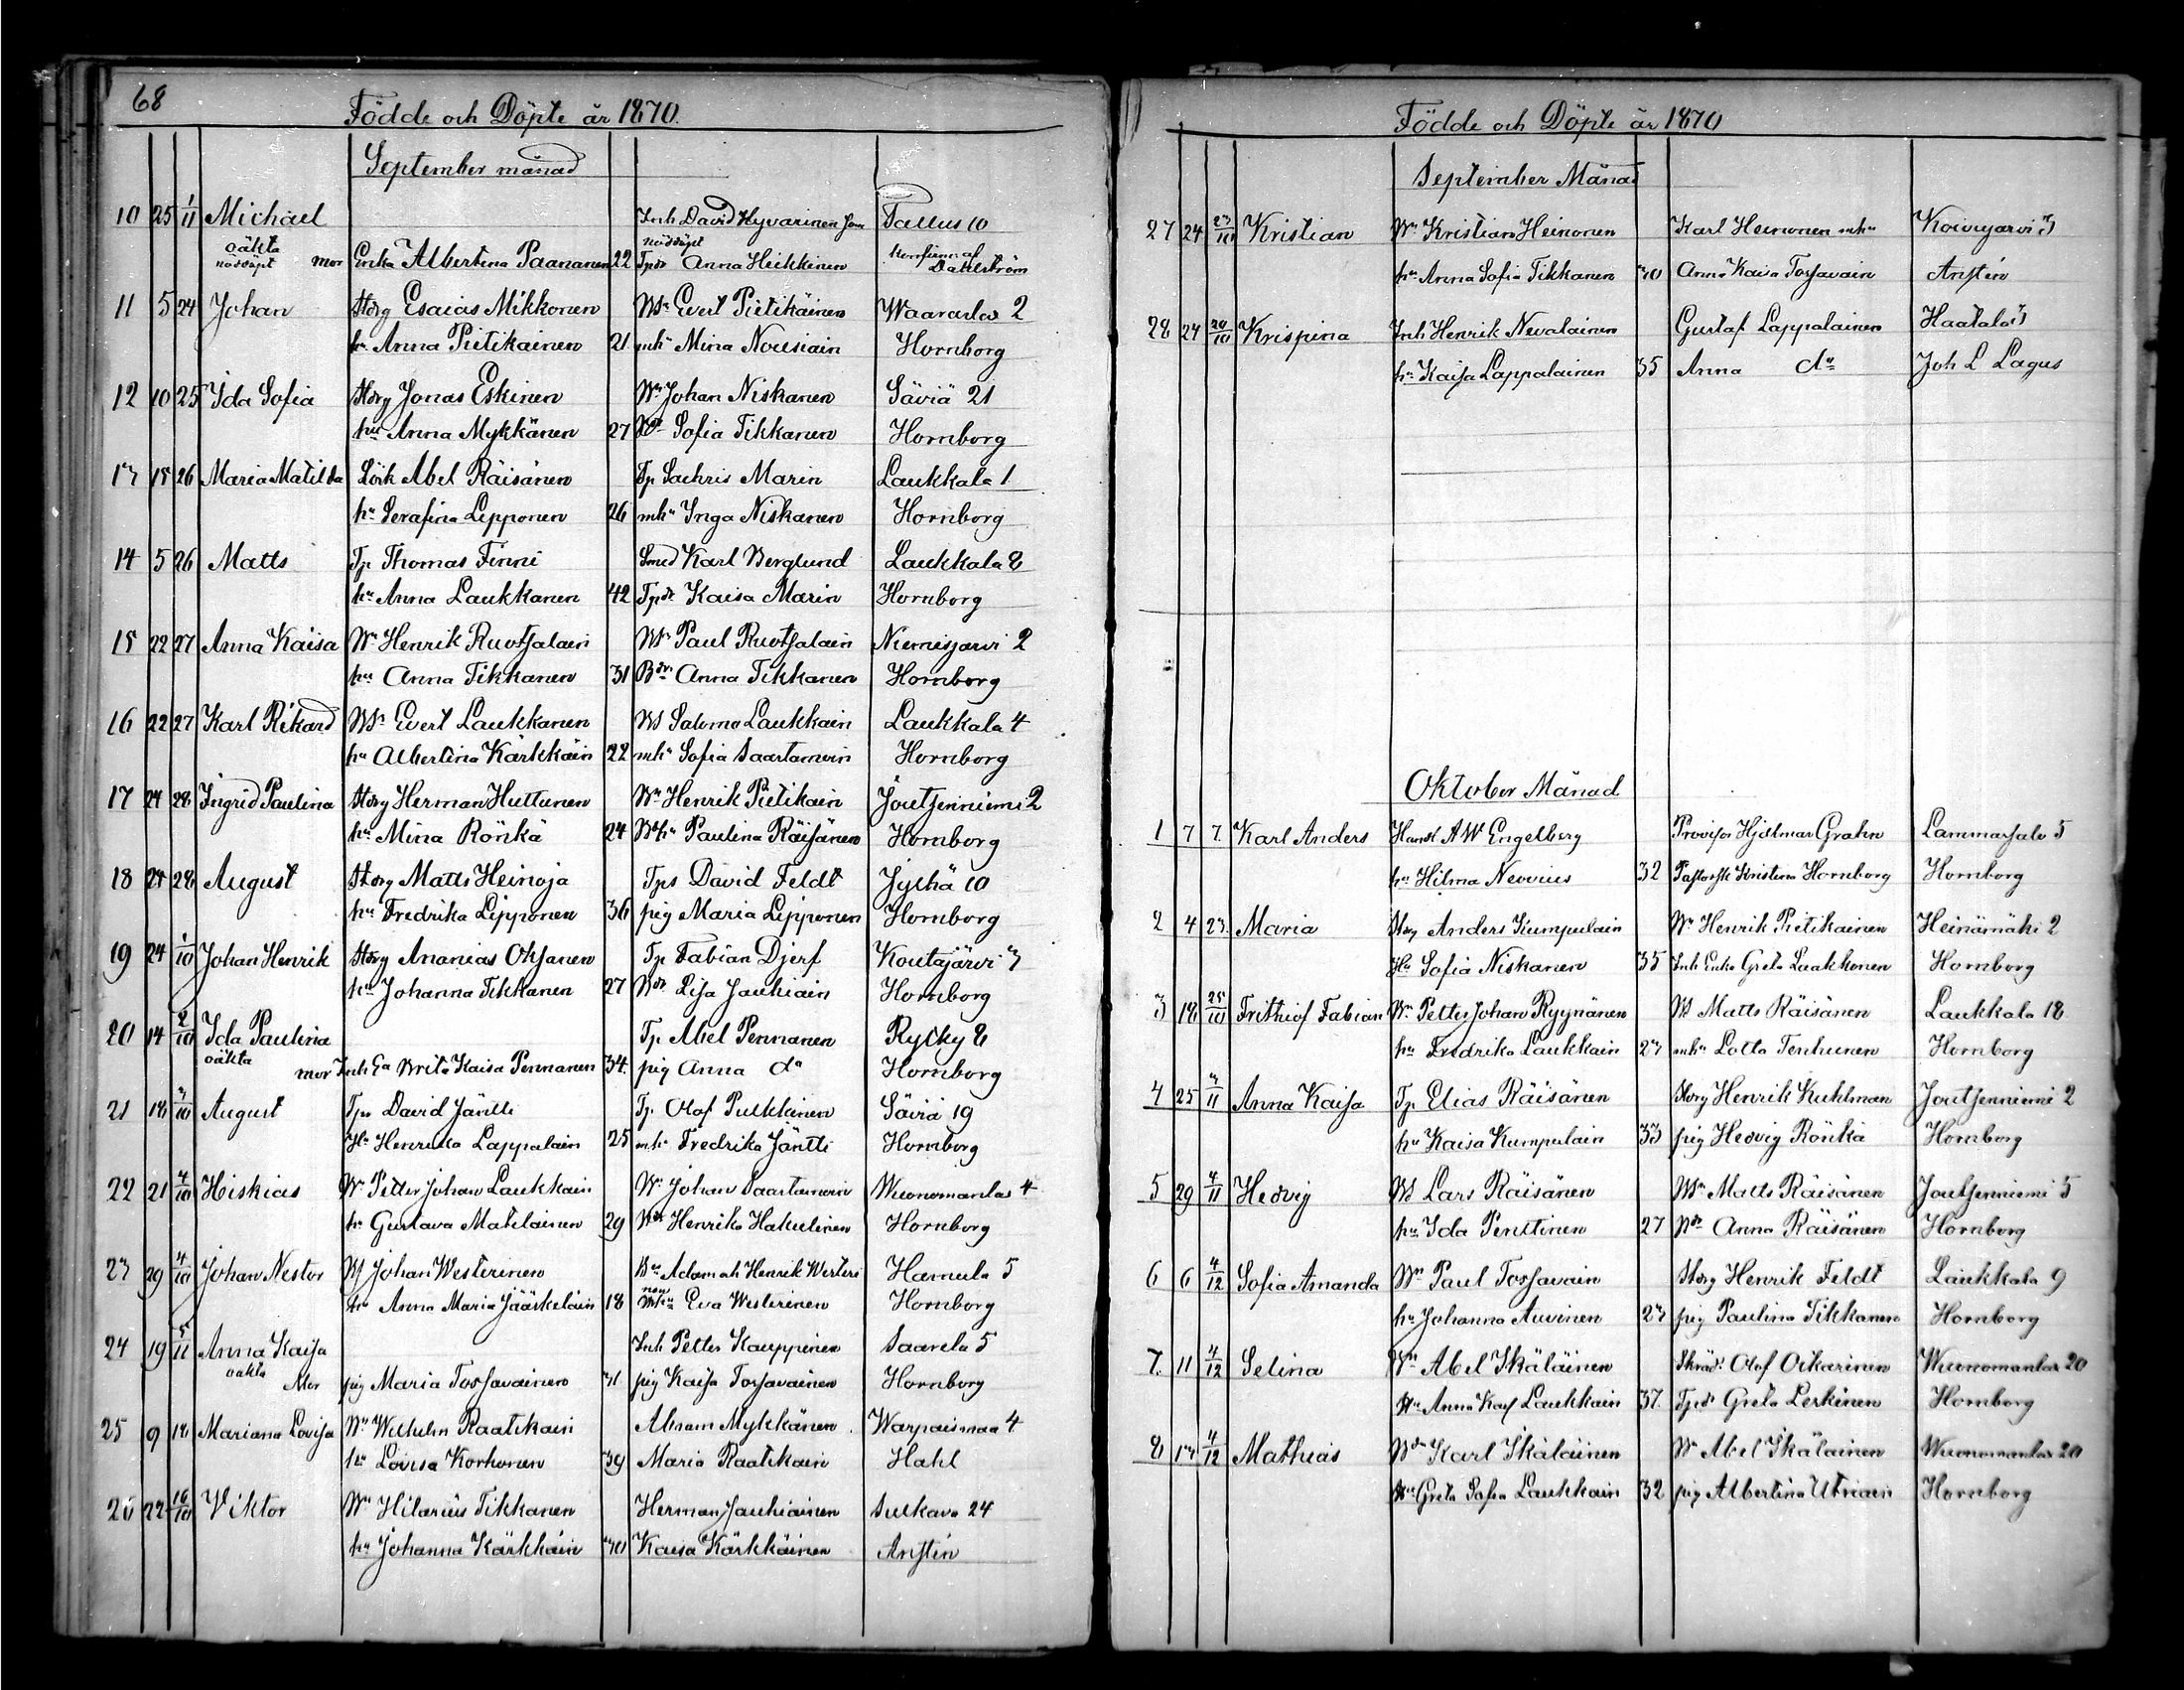 68
Födde och Döpte år 1870.
September månad
10 25 1/11 Michael Inh David Hyvärinen Tallus 10
oäkta nöddöpt
nöddöpt mor Enka Albertina Paananen 22 Tpdr Anna Heikkinen Dahlström
11 5 24 Johan Storg Esaias Mikkonen Ws Evert Pietikäinen Waaraslax 2
hu Anna Pietikainen 21 mhu Mina Nousiain Hornborg
12 10 25 Ida Sofia Storg Jonas Eskinen Wn Johan Niskanen Säviä 21
hu Anna Mykkänen 27 Sofia Tikkanen Hornborg
13 15 26 Maria Matilda Lösk Abel Räisänen Tp Sachris Marin Laukkala 1
hu Serafina Lipponen 26 mhu Inga Niskanen Hornborg
14 5 26 Matts Tp Thomas Finni Smed Karl Berglund Laukkala 8
hu Anna Laukkanen 42 Tpdr Kaisa Marin Hornborg
15 22 27 Anna Kaisa Wn Henrik Ruotsalain Ws Paul Ruotsalain Niemisjärvi 2
hu Anna Tikkanen 31 Bdr Anna Tikkanen Hornborg
16 22 27 Karl Rikard Ws Evert Laukkanen Ws Salomo Laukkain Laukkala 4
hu Albertina Kärkkäin 22 mhu Sofia Saartamoin Hornborg
17 24 28 Ingrid Paulina Storg Herman Huttunen Wn Henrik Pietikain Joutsenniemi 2
hu Mina Rönkä 24 Paulina Räisänen Hornborg
18 24 28 August Storg Matts Heinoja Tps David Feldt Jylhä 10
hu Fredrika Lipponen 36 pig Maria Lipponen Hornborg
19 24 1/10 Johan Henrik Storg Ananias Oksanen Tp Fabian Djerf Koutajärvi 3
hu Johanna Tikkanen 27 Wdr Lisa Jauhiain Hornborg
20 14 2/10 Ida Paulina Tp Abel Pennanen Rytky 8
oäkta mor Inh Ea Brita Kaisa Pennanen 34. pig Anna do Hornborg
21 18 3/10 August Tps David Jäntti Tp Olof Pulkkinen Säviä 19
Hu Henrika Lappalain 25 mhu Fredrika Jäntti Hornborg
22 21 4/10 Hiskias Wn Petter Johan Laukkain Wn Johan Saartamoin Wuonamanlax 4
hu Gustava Matilainen 29 Wdr Henrika Hakulinen Hornborg
23 29 4/10 Johan Nestor Ws Johan Westerinen Bn Adam Henrik Westeri Hamula 5
hu Anna Maria Jääskeläin 18 Eva Westerinen Hornborg
24 19 5/11 Anna Kaisa Inh Petter Kauppinen Saarela 5
oäkta Mor pig Maria Tossavainen 31 pig Kaisa Tossavainen Hornborg
25 9 18 Mariana Lovisa Wn Wilhelm Raatikain Abram Mykkänen Warpaismaa 4
hu Lovisa Korhonen 39 Maria Raatikain Hahl
26 22 16/10 Viktor Wn Hilarius Tikkanen Herman Jauhiainen Sulkava 24
hu Johanna Kärkkäin 30 Kaisa Kärkkäinen Anstén
Födde och Döpte år 1870
September Månad
27 24 23/10 Kristian Wn Kristian Heinonen Karl Heinonen mhu Koivujärvi 3
hu Anna Sofia Tikkanen 30 Anna Kaisa Tossavain Anstén
28 24 20/10 Krispina Inh Henrik Nevalainen Gustaf Lappalainen Haatala 3
hu Kaisa Lappalainen 35 Anna do Joh L Lagus
Oktober Månad
1 7 7. Karl Anders Handl A W Engelberg Provisor Hjelmar Grahn Lammassalo 5
hu Hilma Nevvius 32 Pastorsk Kristina Hornborg Hornborg
2 4 23. Maria Storg Anders Kumpulain Wn Henrik Pietikainen Heinämäki 2
Hu Sofia Niskanen 35 Inh Enka Greta Laakkonen Hornborg
3 18 25/10 Frithiof Fabian Wn Petter Johan Ryynänen Ws Matts Räisänen Laukkala 18
hu Fredrika Laukkain 23 mhu Lotta Tenhunen Hornborg
4 25 3/11 Anna Kaisa Tp Elias Räisänen Storg Henrik Kuhlman Joutsenniemi 2
hu Kaisa Kumpulain 33 pig Hedvig Rönkä Hornborg
5 29 4/11 Hedvig Ws Lars Räisänen Ws Matts Räisänen Joutsenniemi 5
hu Ida Penttinen 27 Wdr Anna Räisänen Hornborg
6 6 4/12 Sofia Amanda Wn Paul Tossavain Storg Henrik Feldt Laukkala 9
hu Johanna Auvinen 23 pig Paulina Tikkanen Hornborg
7. 11 4/12 Selina Wn Abel Ikäläinen Skräd. Olof Oikarinen Wuonamanlax 20
Hu Anna Kais Laukkain 37. Tpdr Greta Lerkinen Hornborg
8 13 4/12 Mathias Karl Ikäläinen Wn Abel Ikälainen Wuonamanlax 20
Hu Greta Sofia Laukkain 32 pig Albertina Utriain Hornborg